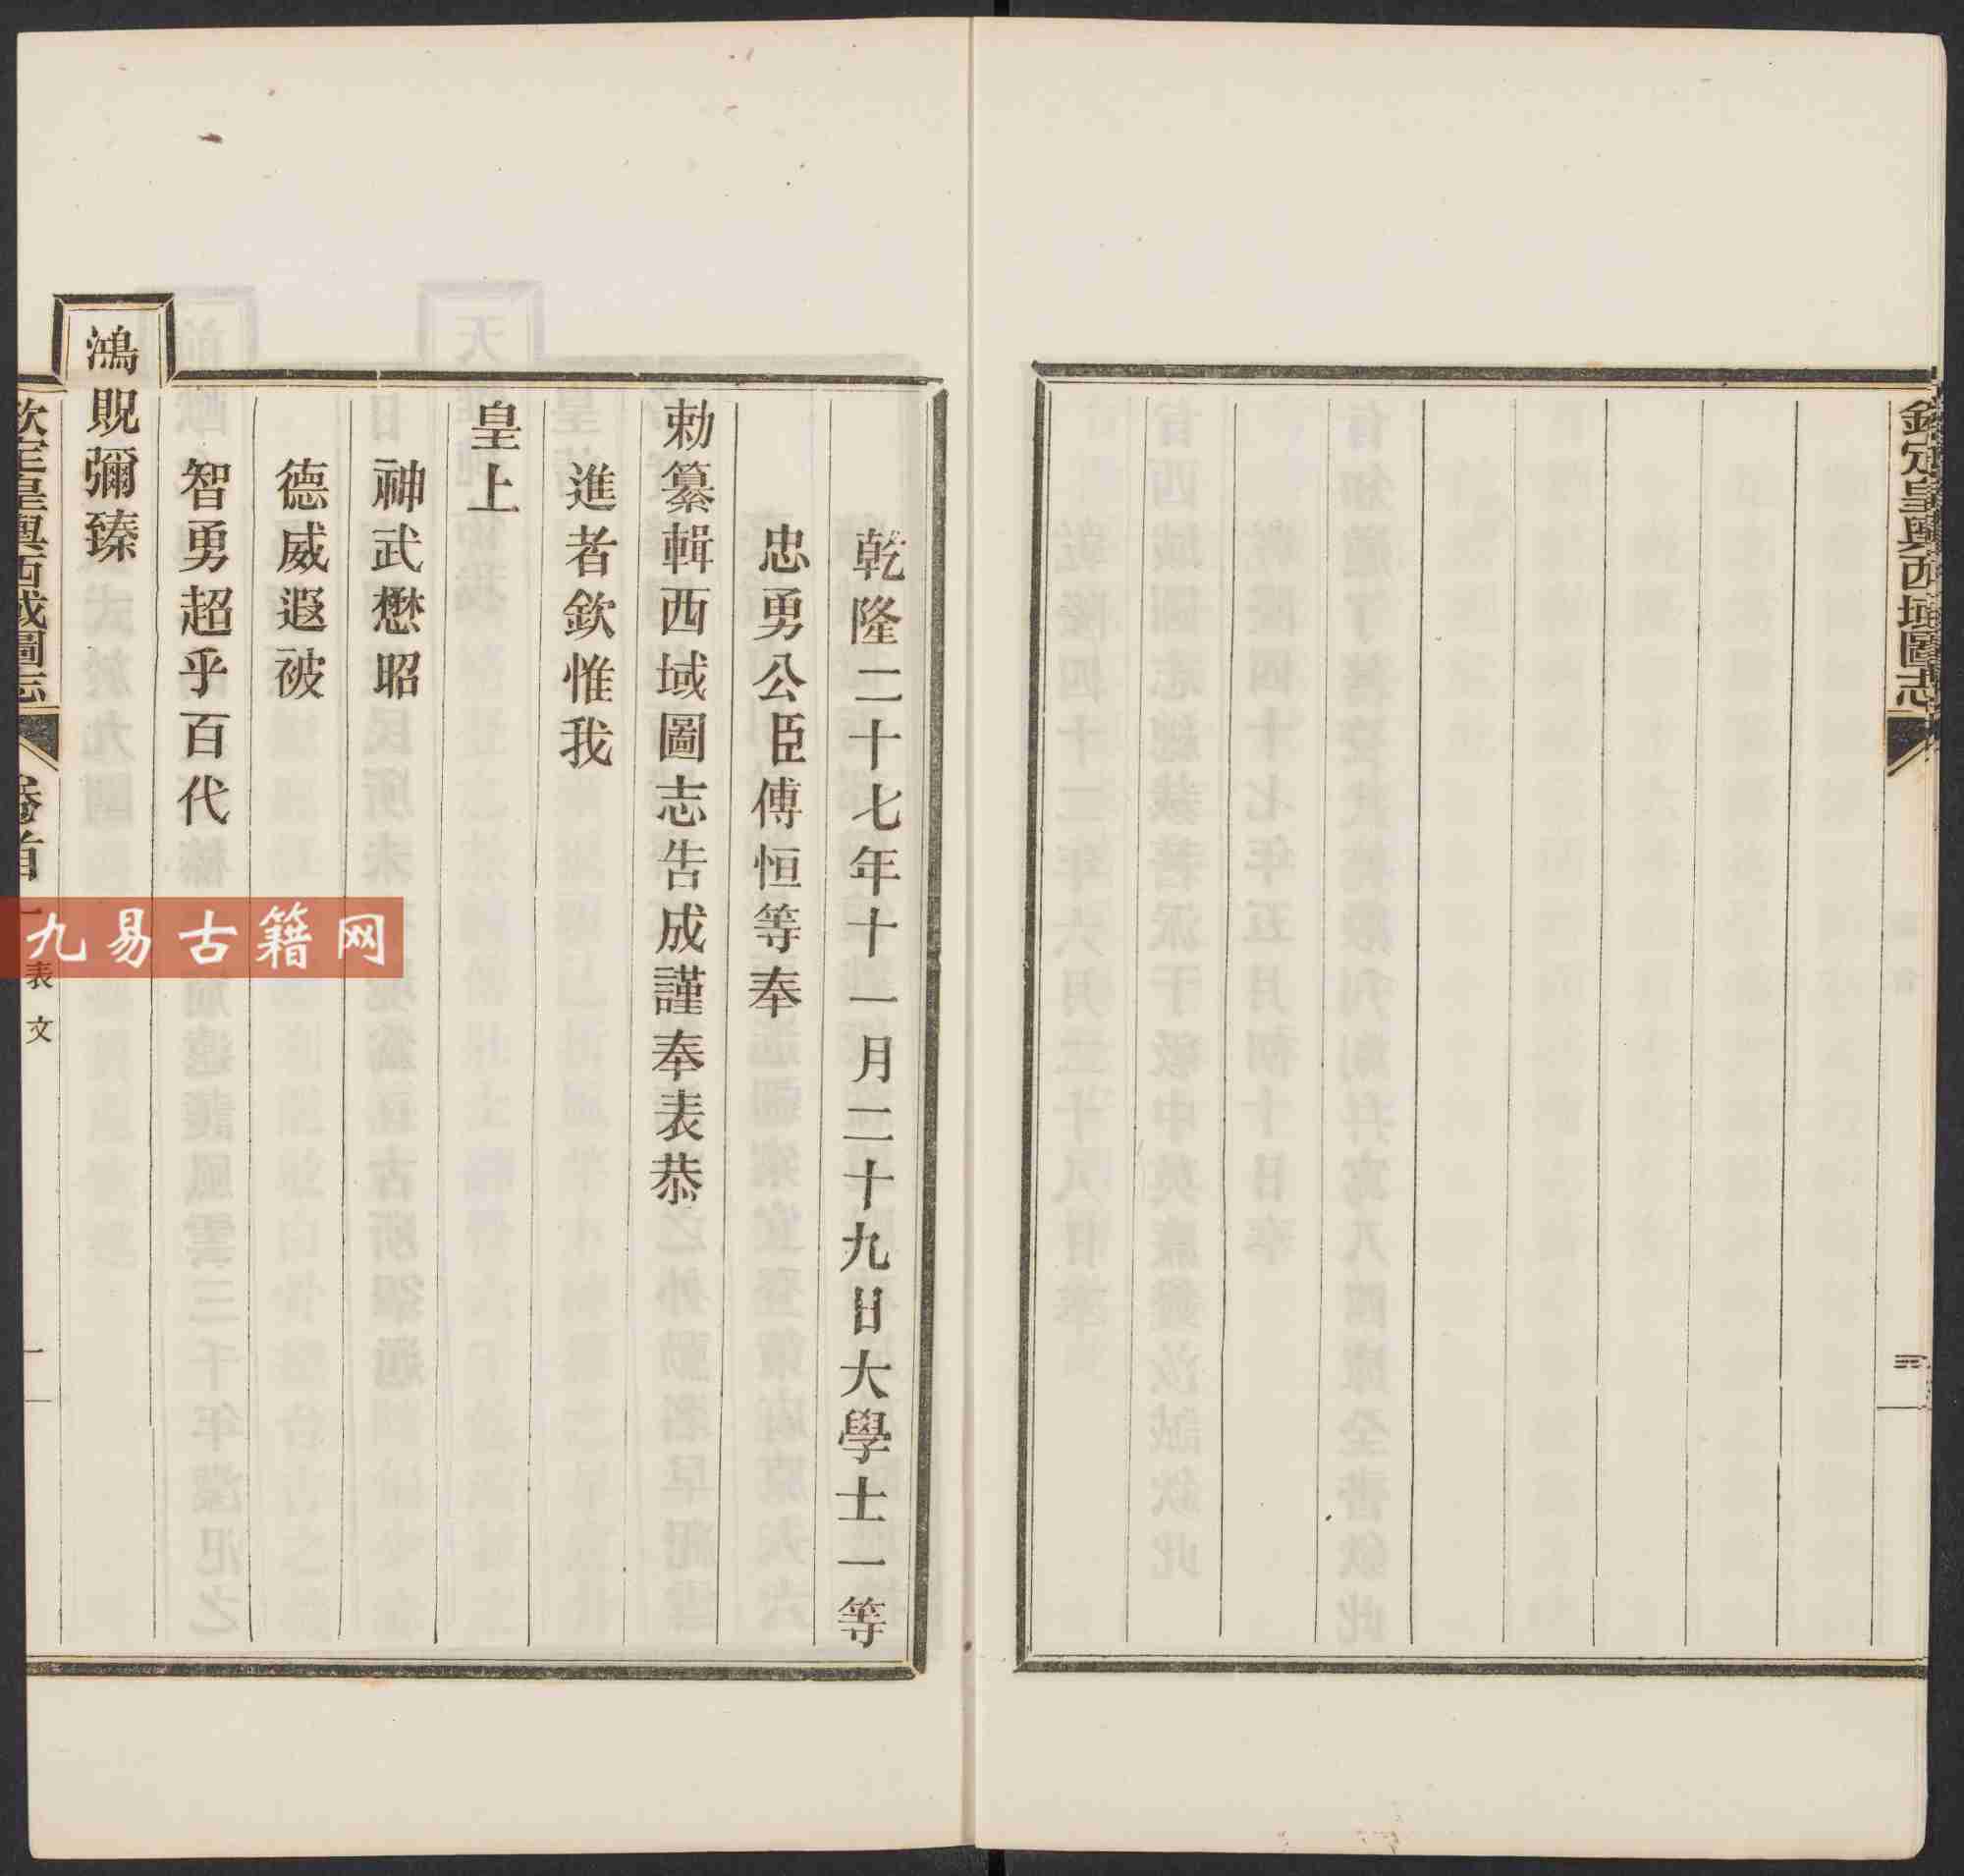 欽定皇輿西域圖志
三
乾隆二十七年十一月二十九日大學士一等
忠勇公臣傅恒等奉
勅纂輯西域圖志告成謹奉表恭
進者欽惟我
皇上
神武懋昭
德威遐被
智勇超乎百代
鴻貺彌臻
欽定皇輿西域圖志
卷首一
表文
一
九易古籍网